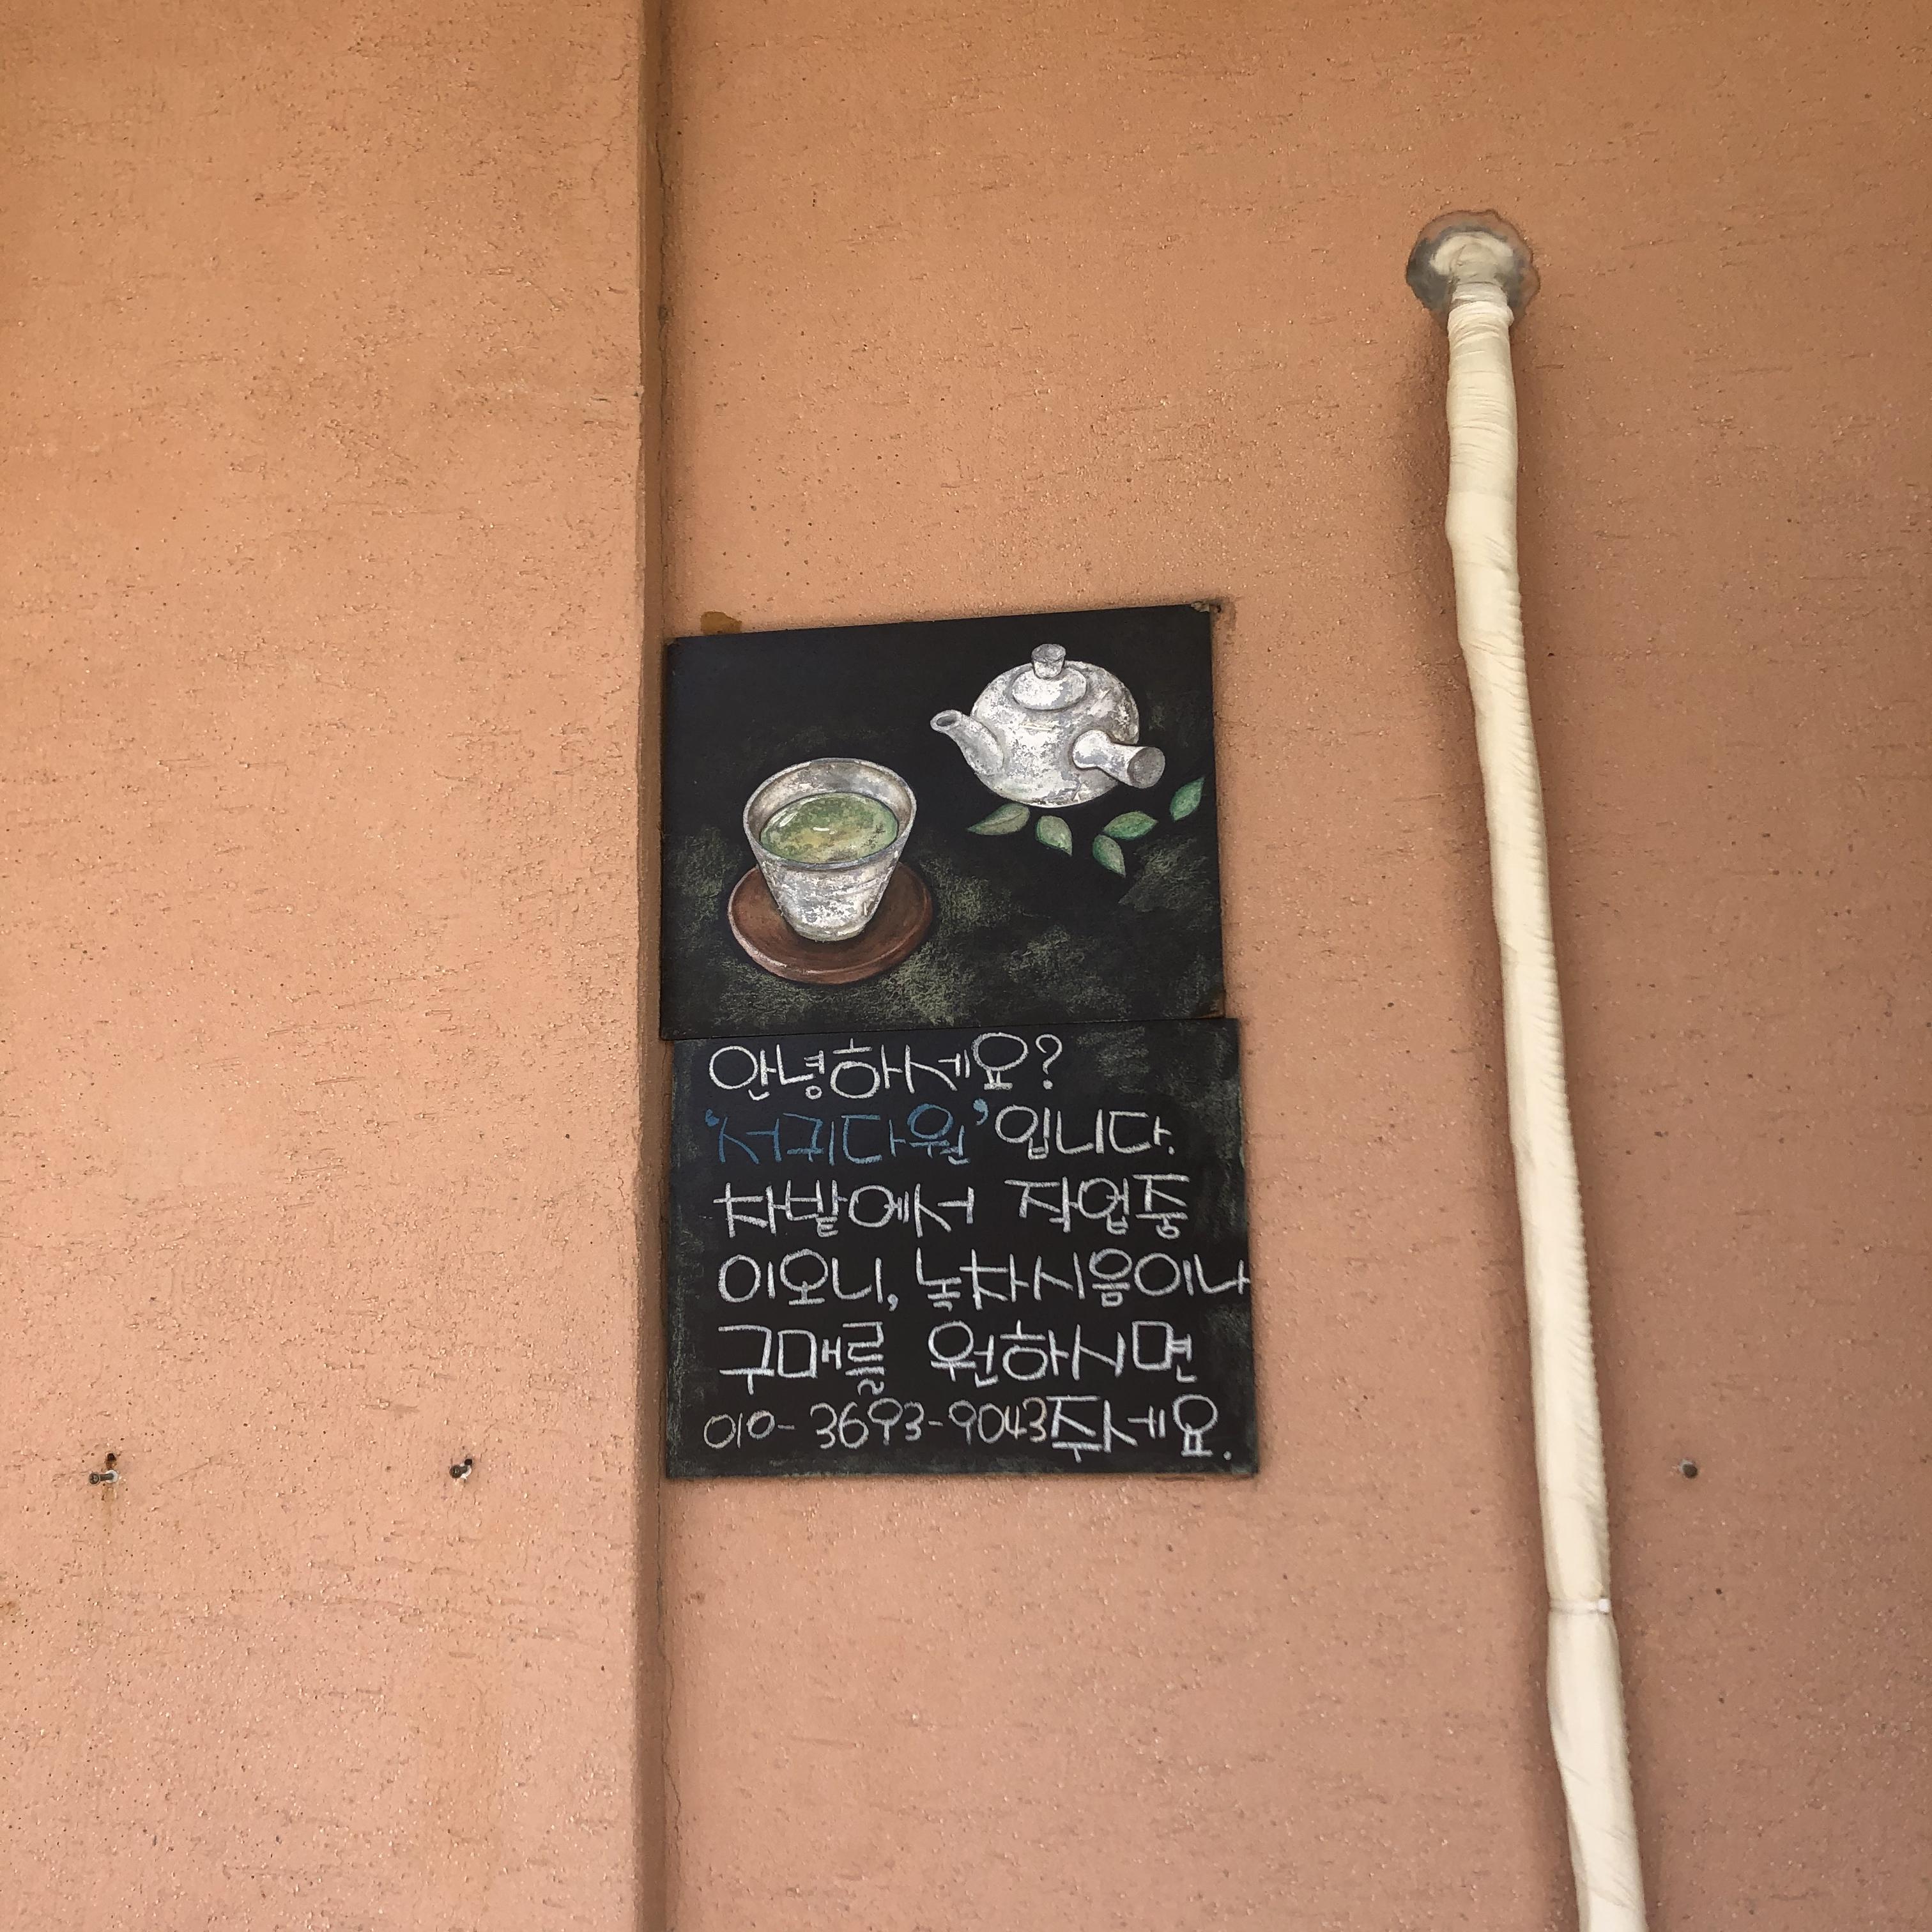 안녕하세요?
'서귀다원'입니다.
차밭에서 작업중
이오니, 녹차시음이나
구매를 원하시면
010-3693-9043주세요.